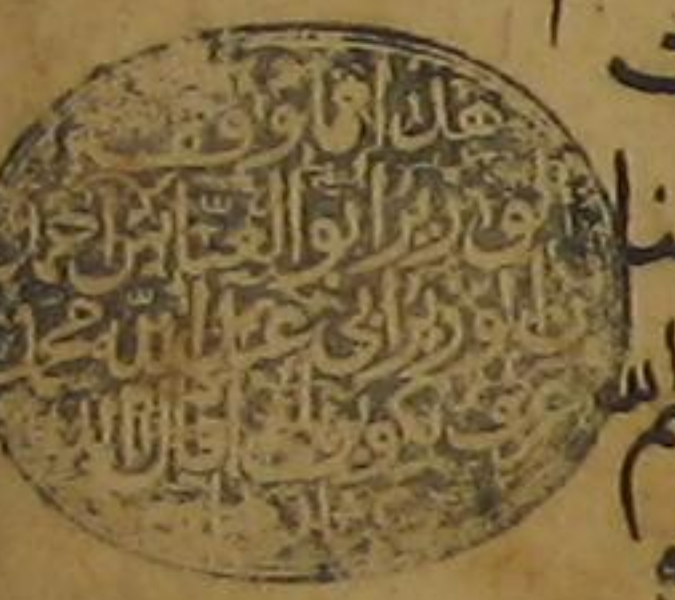 هذا مما وقفه
الوزير ابو العباس احمد
بن الوزير ابى عبد الله محمد
عرف بكوبريلى اقال الله